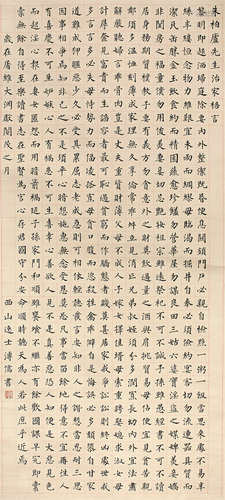 朱柏廬先生治家格言
黎明即起灑掃庭除要內外整潔既昏便息關鎖門戶必親自檢點一粥一飯當思來處不易半
絲半縷恆念物力維艱宜未雨而綢繆毋臨渴而掘井自奉必須儉約宴客切勿流連器具質而
潔瓦缶勝金玉飲食約而精園蔬愈珍饈勿營華屋勿謀良田三姑六婆實淫盜之媒婢美妾嬌
非閨房之福奴僕勿用俊美妻妾切忌豔妝祖宗雖遠祭祀不可不誠子孫雖愚經書不可不讀
居身務期質樸教子要有義方勿貪意外之財莫飲過量之酒與肩挑貿易毋佔便宜見貧苦
親鄰須加溫恤刻薄成家理無久享倫常乖舛立見消亡兄弟叔姪須分多潤寡長幼內外宜法肅辭
嚴聽婦言乖骨肉豈是丈夫重貲財薄父母不成人子嫁女擇佳壻毋索重聘娶媳求淑女毋
計厚奩見富貴而生諂容者最可恥遇貧窮而作驕態者賤莫甚居家戒爭訟訟則終凶處世戒
多言言多必失毋恃勢力而凌逼孤寡毋貪口腹而恣殺牲禽乖僻自是悔誤必多頹惰自甘家
道難成狎昵惡少久必受其累屈志老成急則可相依輕聽發言安知非人之譖愬當忍耐三思
因事相爭焉知非我之不是須平心暗想施惠無念受恩莫忘凡事當留餘地得意不宜再往人
有喜慶不可生妒忌心人有禍患不可生喜幸心善欲人見不是真善惡恐人知便是大惡見色
而起淫心報在妻女匿怨而用暗箭禍延子孫家門和順雖饔飧不繼亦有餘歡國課早完即囊
橐無餘自得至樂讀書志在聖賢為官心存君國守分安命順時聽天為人若此庶乎近焉
歲在屠維大淵獻茂之月
西山逸士溥儒書